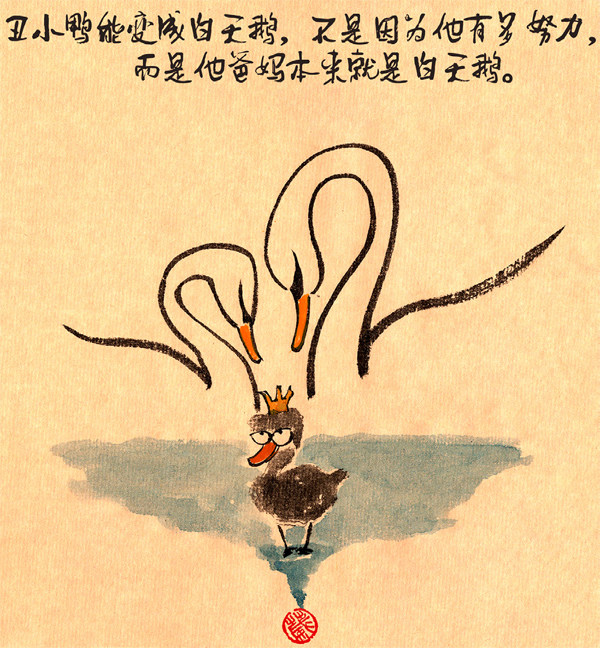 丑小鸭能变成白天鹅，不是因为他有多努力，
而是他爸妈本来就是白天鹅。